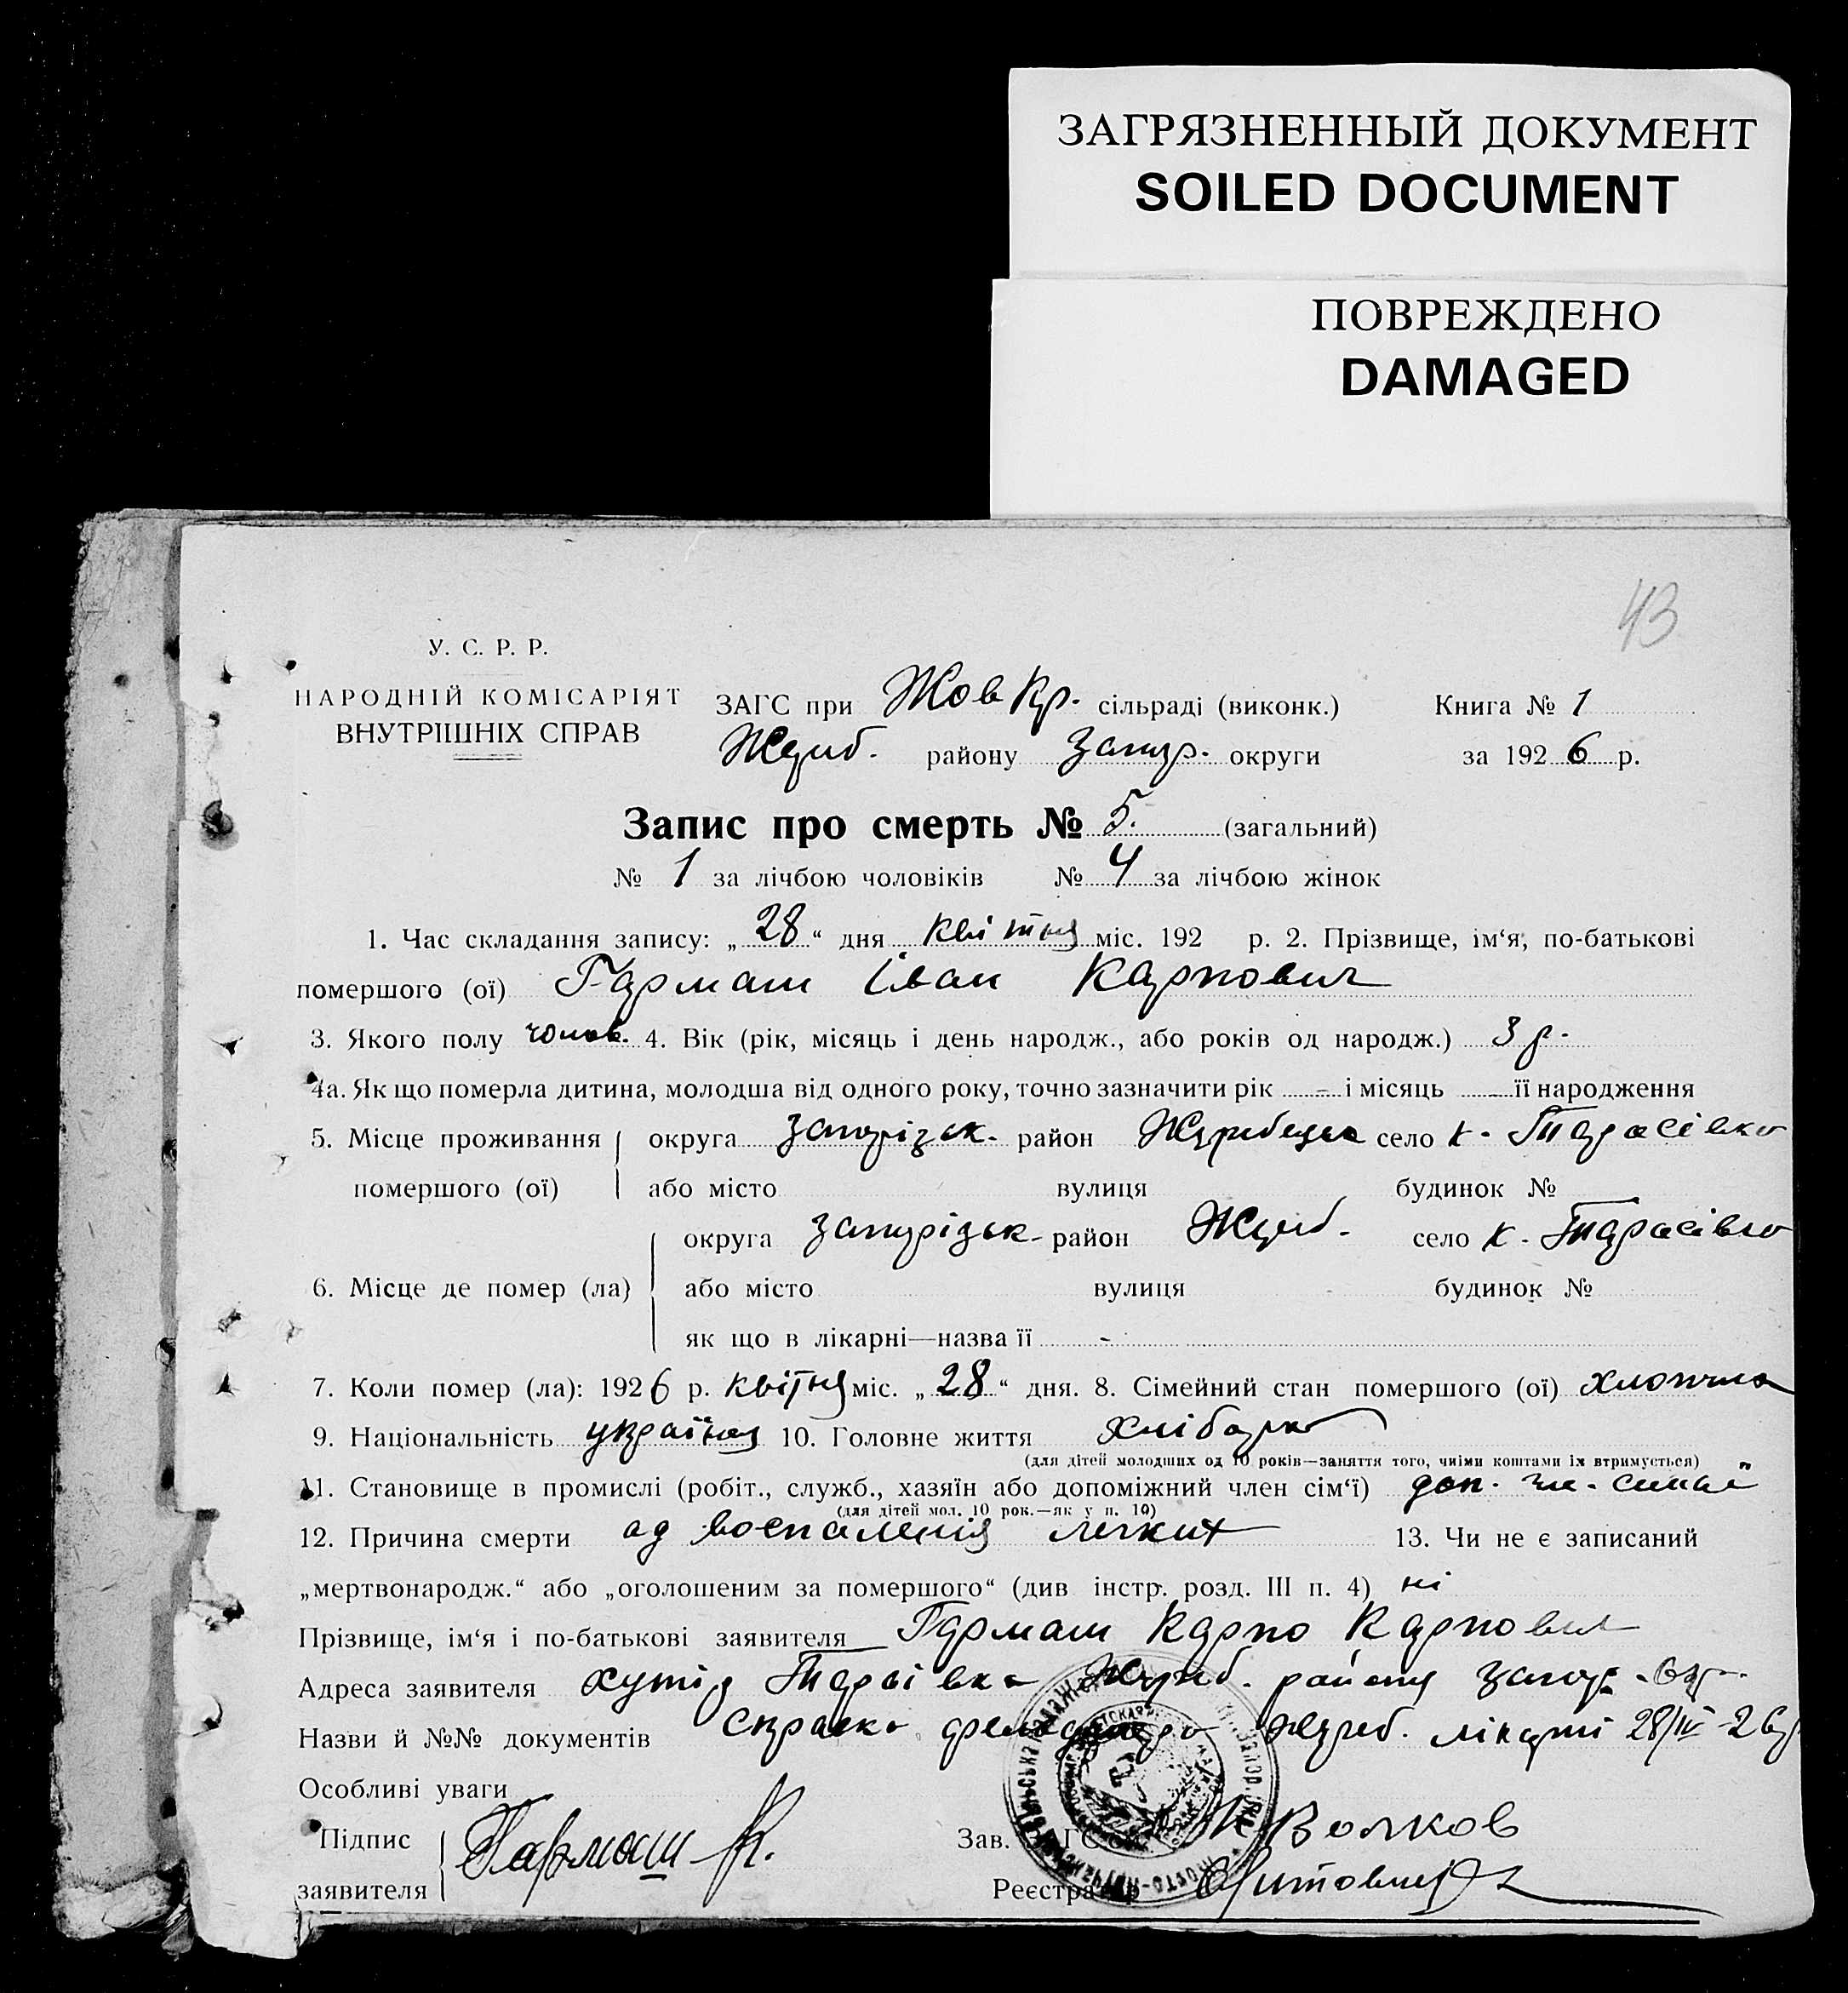 ЗАГРЯЗНЕННЫЙ ДОКУМЕНТ
SOILED DOCUMENT
ПОВРЕЖДЕНО
DAMAGED
43
У. С. Р. Р.
НАРОДНІЙ КОМІСАРІЯТ
ВНУТРІШНІХ СПРАВ
ЗАГС при Жов Кр. сільраді (виконк.) Книга № 1
Жереб. району Запор. округи за 1926 р.
Запис про смерть № 5. (загальний)
№ 1 за лічбою чоловіків № 4 за лічбою жінок
1. Час складання запису: „28“ дня квітня міс. 192 р. 2. Прізвище, ім‘я, по-батькові
помершого (ої) Гармаш Іван Карпович
3. Якого полу чолов. 4. Вік (рік, місяць і день народж., або років од народж.) 3 р.
4а. Як що померла дитина, молодша від одного року, точно зазначити рік - і місяць її народження
5. Місце проживання округа Запорізьк. район Жеребецьк село х. Тарасівка
помершого (ої) або місто вулиця будинок №
округа Запорізьк. район Жереб. село х. Тарасівка
6. Місце де помер (ла) або місто вулиця будинок №
як що в лікарні—назва її -
7. Коли помер (ла): 1926 р. квітня міс. „28“ дня. 8. Сімейний стан помершого (ої) хлопчик
9. Національність україна 10. Головне життя хлібороб
(для дітей молодших од 10 років—заняття того, чиїми коштами їх втримується)
11. Становище в промислі (робіт., служб., хазяїн або допоміжний член сім‘ї) доп. чл. симьї
(для дітей мол. 10 рок.—як у п. 10)
12. Причина смерти од воспаления легких 13. Чи не є записаний
„мертвонародж.“ або „оголошеним за помершого“ (див інстр. розд. III п. 4) ні
Прізвище, ім‘я і по-батькові заявителя Гармаш Карпо Карпович
Адреса заявителя хутір Тарасівка Жереб. району Запор. окр.
Назви й №№ документів Справка фельдшера Жереб. лікарні 28/IV-26 р
Особливі уваги
Підпис Гармаш К. Зав. Волков
заявителя Реєстратор